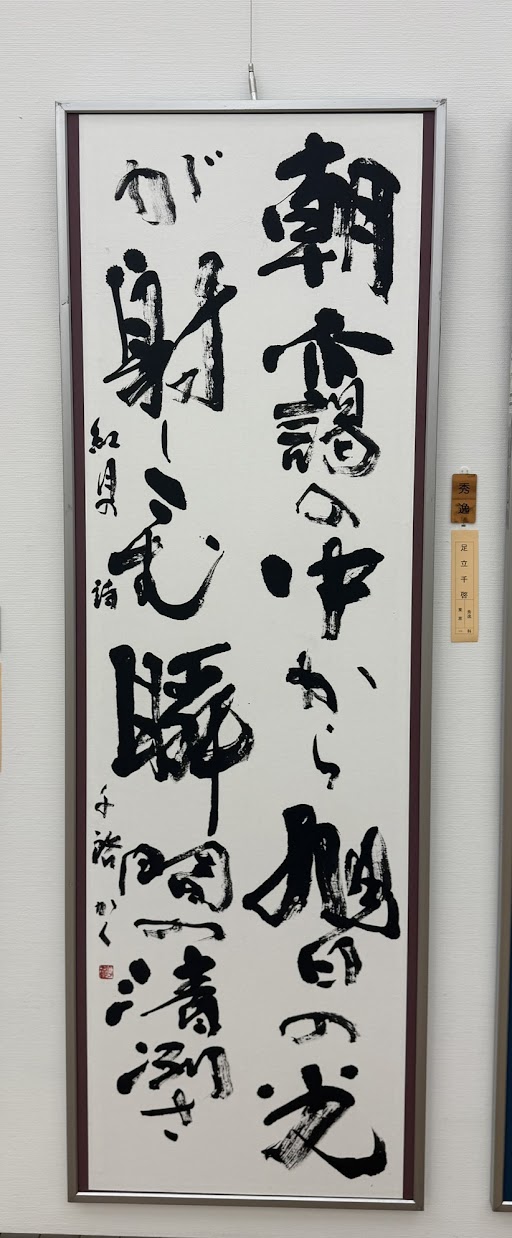 朝靄の中から旭日の光
が射しこむ瞬間の清冽さ
紅月の詩 千啓かく
秀逸
足立千啓